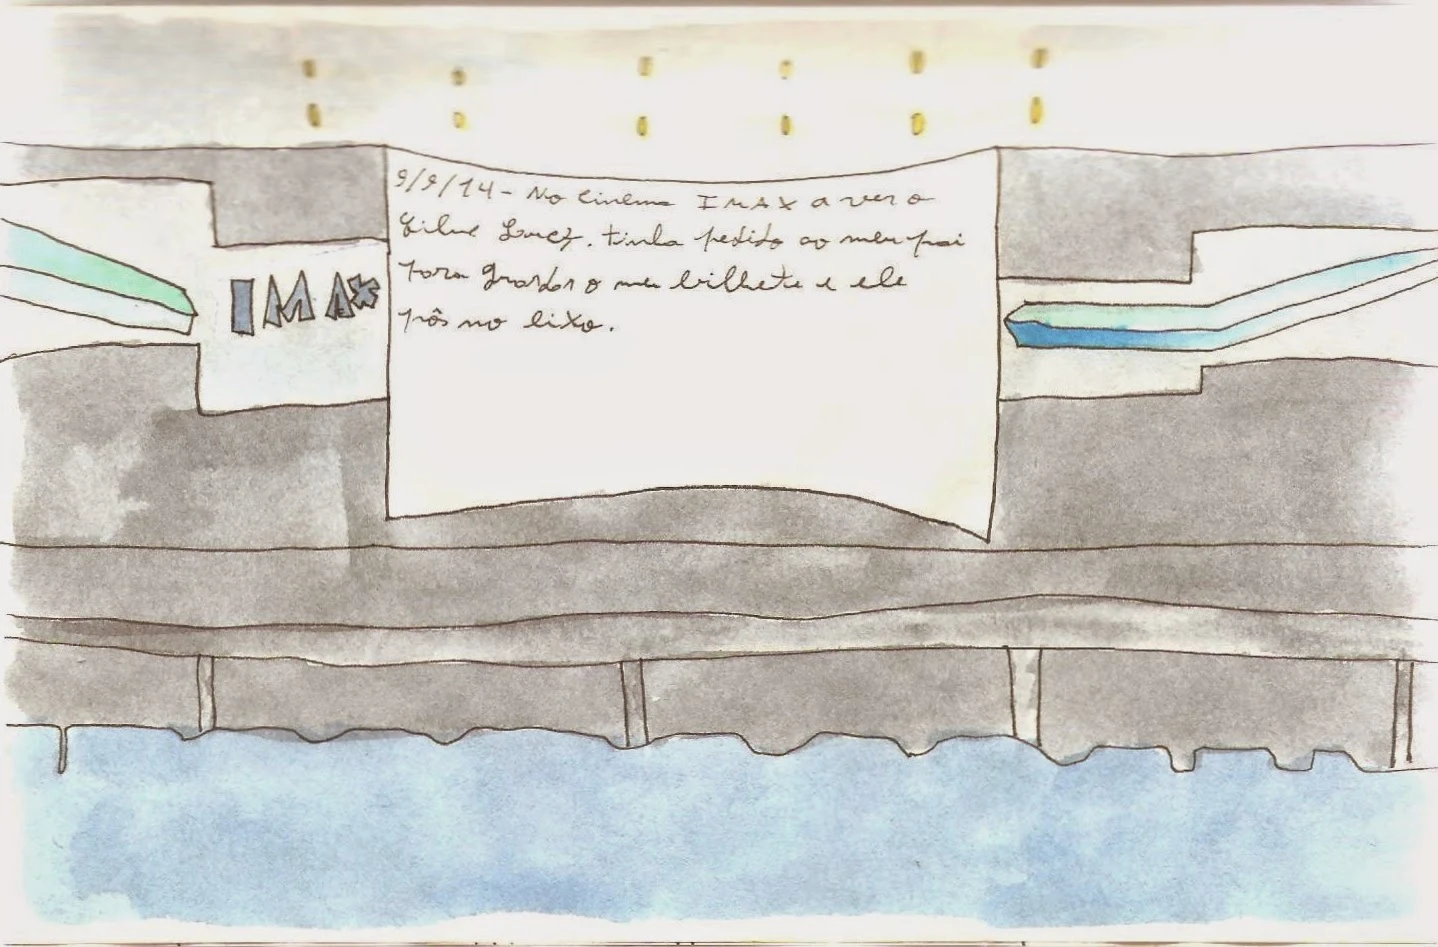 IMAX
9/9/14 - No cinema IMAX a ver o
filme Lucy. tinha pedido ao meu pai
para guardar o meu bilhete e ele
pôs no lixo.